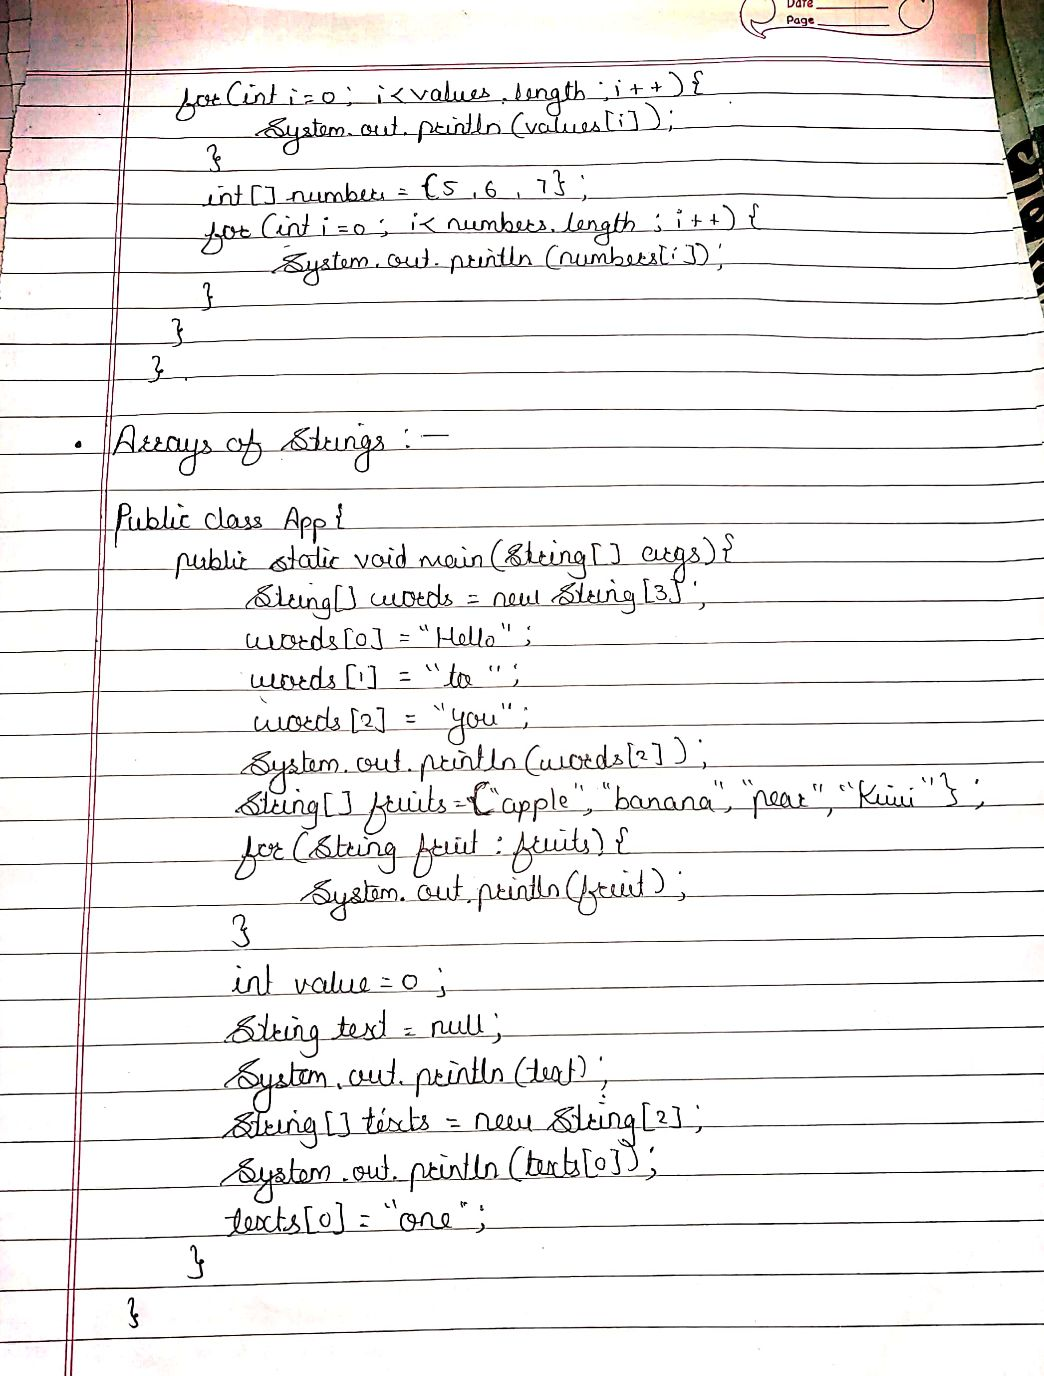 Date
Page
for (int i=0; i<values.length; i++){
System.out.println(values[i]);
}
int[] numbers = {5, 6, 7};
for (int i=0; i< numbers.length; i++) {
System.out.println(numbers[i]);
}
}
}
• Arrays of Strings :-
Public class App {
public static void main (String[] args){
String[] words = new String[3];
words[0] = "Hello";
words [1] = "to";
words [2] = "you";
System.out.println (words[2]);
String[] fruits = {"apple", "banana", "pear", "Kiwi"};
for (String fruit : fruits) {
System.out.println(fruit);
}
int value = 0;
String text = null;
System.out.println (text);
String [] texts = new String[2];
System.out.println (texts[0]);
texts[0] = "one";
}
}